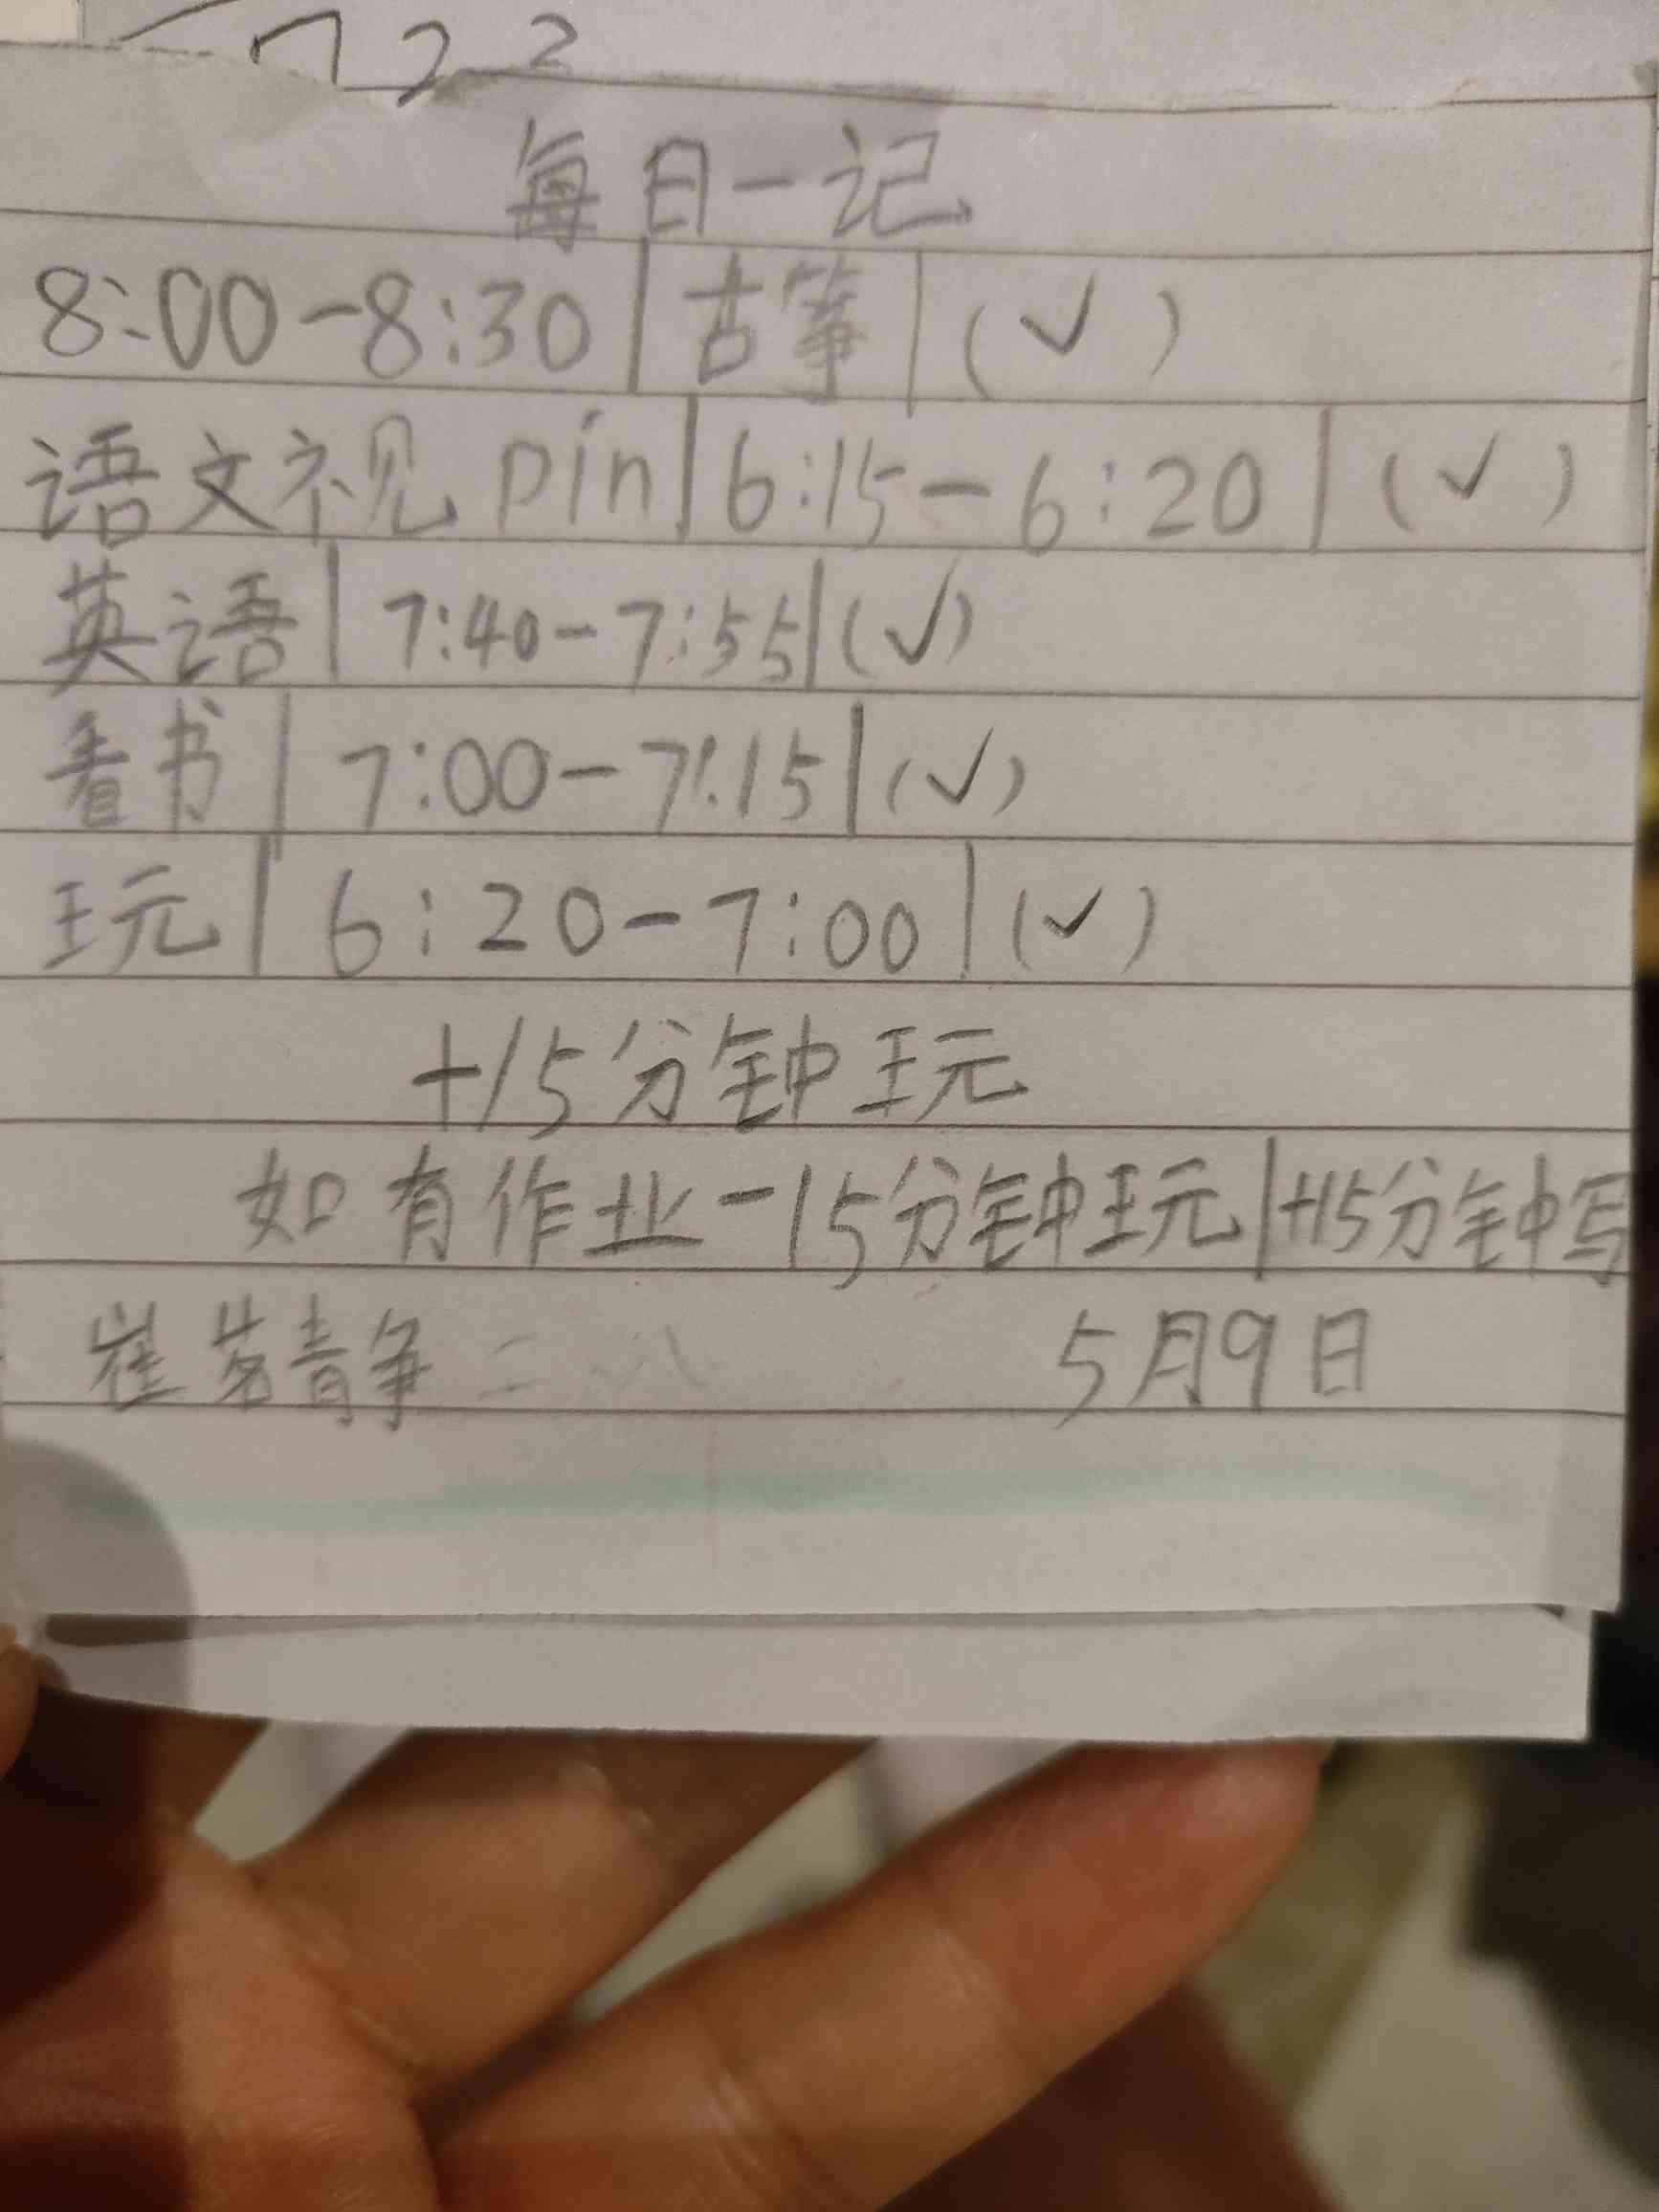 每日一记
8:00-8:30|古筝|(✓)
语文视pin|6:15-6:20|(✓)
英语|7:40-7:55|(✓)
看书|7:00-7:15|(✓)
玩|6:20-7:00|(✓)
+15分钟玩
如有作业-15分钟玩|+15分钟写
崔茗静 5月9日